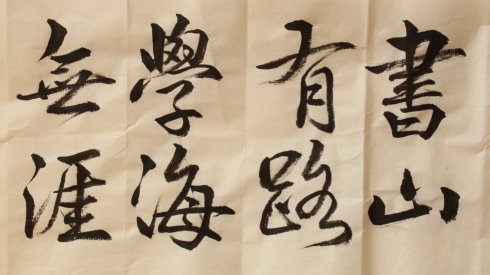 書山
有路
學海
無涯